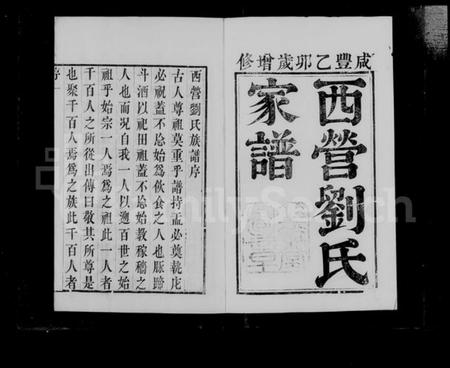 咸豐乙卯歲增修
西營劉氏
家譜
西營劉氏族譜序
古人尊祖莫重乎譜持盂必奠執庀
必祝蓋不忘始爲飲食之人也豚蹄
斗酒以祀田祖蓋不忘始教稼穡之
人也而况自我一人以遡百世之始
祖乎始宗一人焉爲之祖此一人者
千百人之所從出傳曰敬其所尊是
也聚千百人焉爲之族此千百人者
FamilySearch